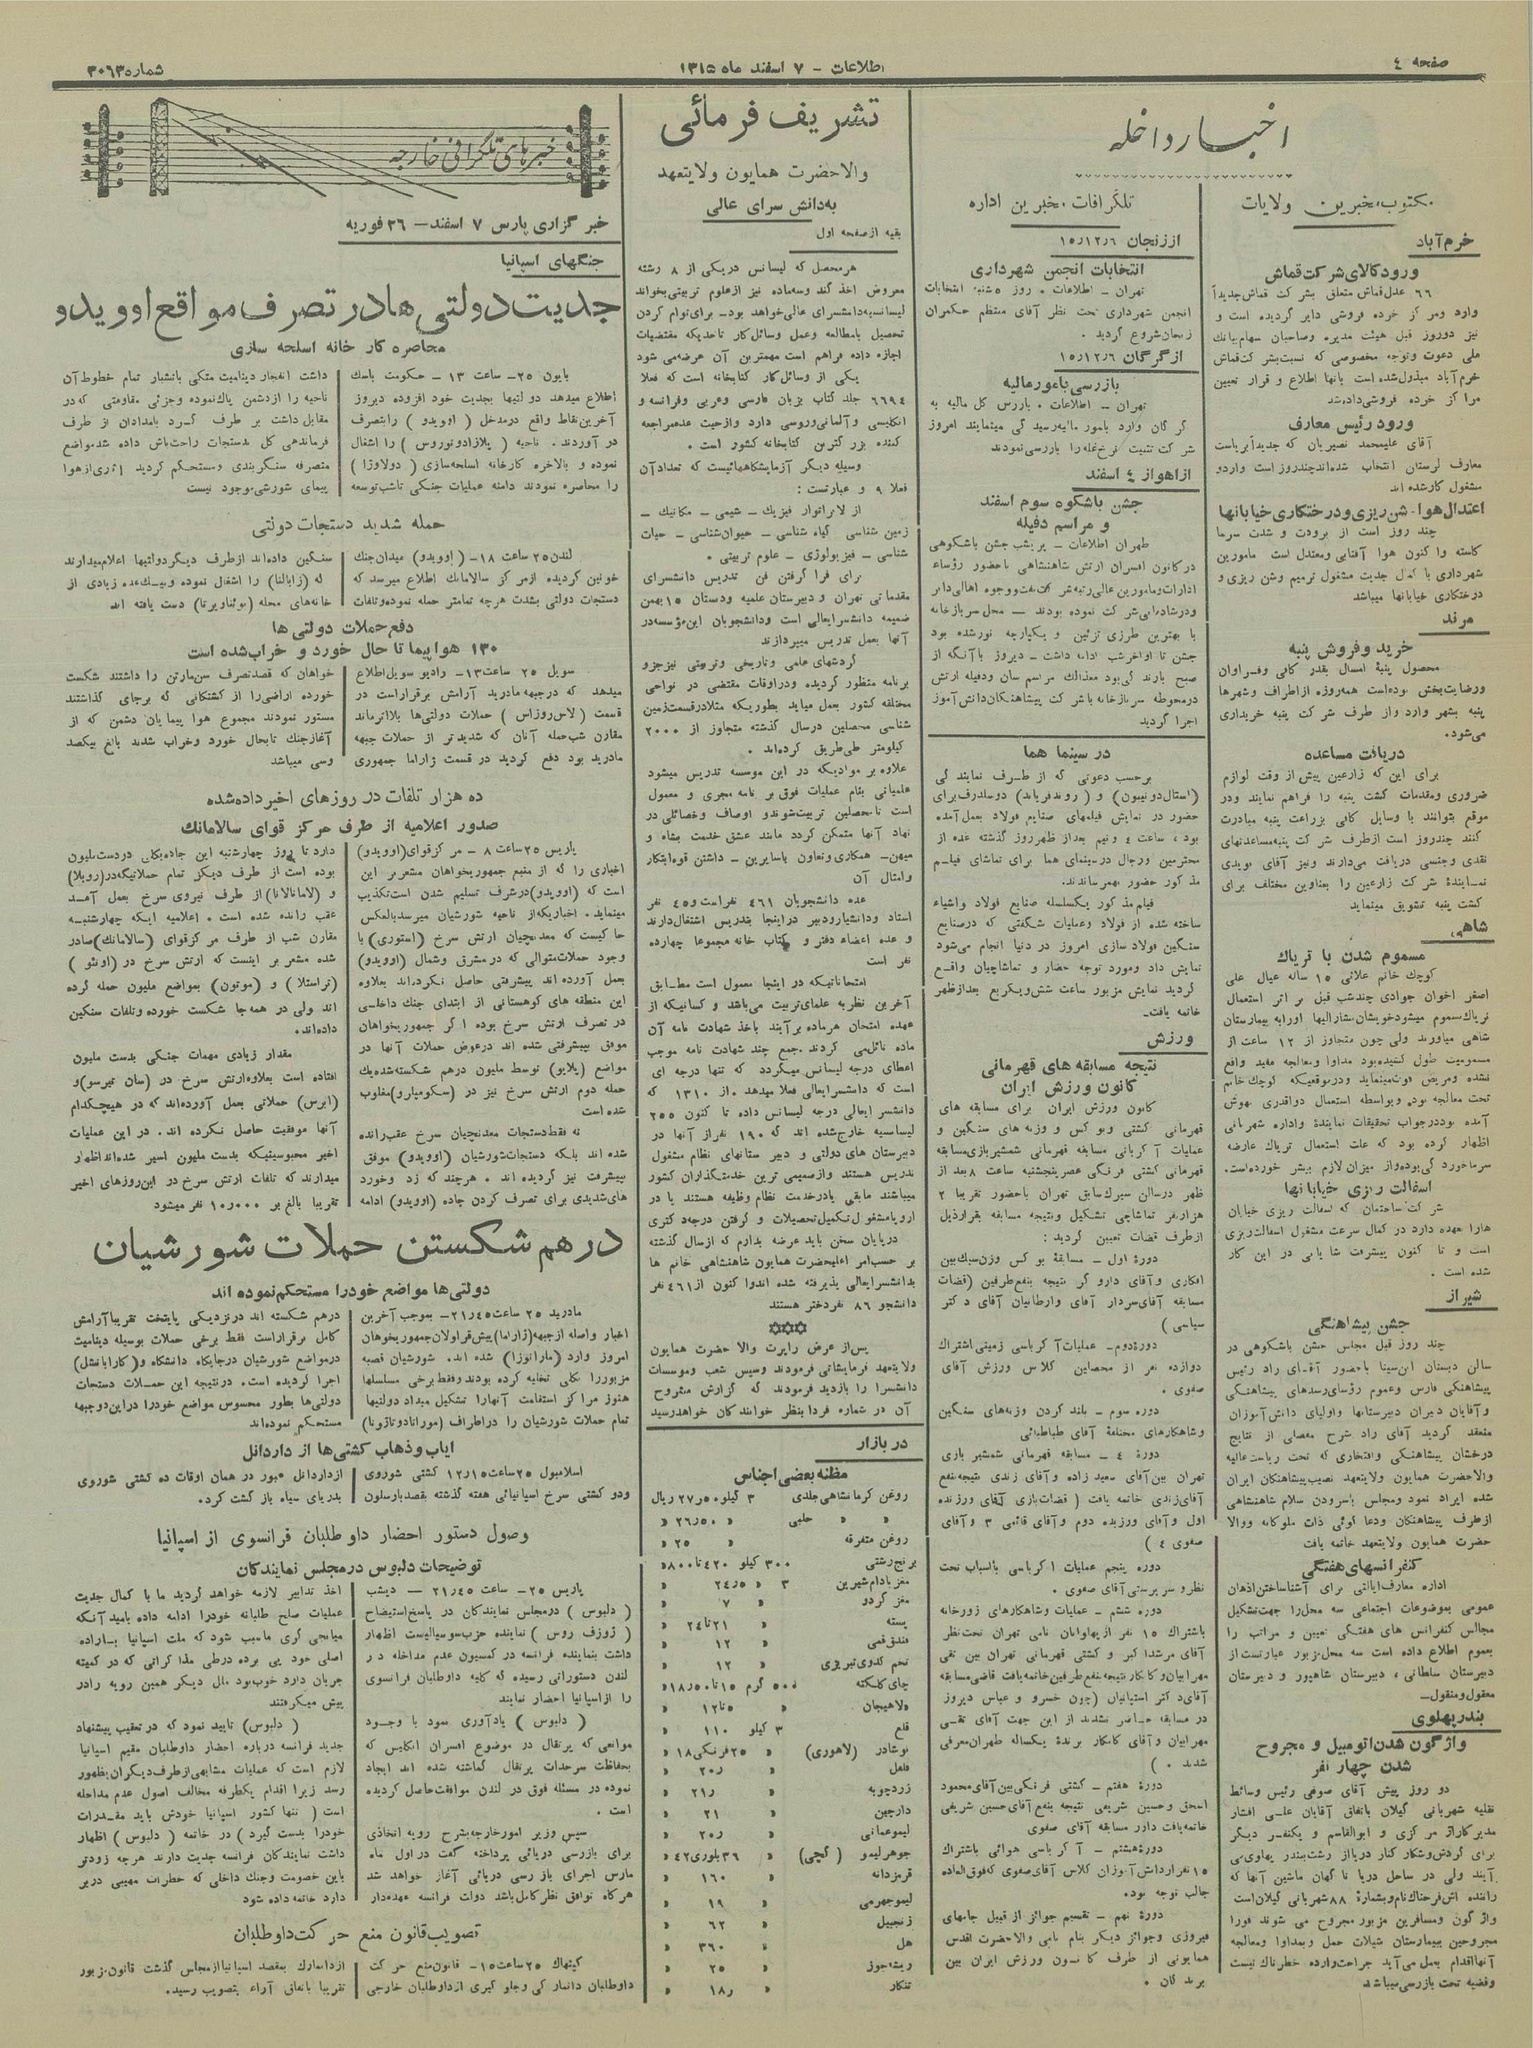 صفحه ٤
اطلاعات - ۷ اسفند ماه ۱۳۱۵
شماره ۳۰۶۳
اخبار داخله
مکتوب مخبرین ولایات
خرم آباد
ورود کالای شرکت قماش
۶۶ عدل قماش متعلق بشرکت قماش جدیداً
وارد ومرکز خرده فروشی دایر گردیده است و
نیز دوروز قبل هیئت مدیره وصاحبان سهام بانک
ملی دعوت وتوجه مخصوصی که نسبت بشرکت قماش
خرم آباد مبذول شده است بآنها اطلاع و قرار تعیین
مراکز خرده فروشی داده شد
ورود رئیس معارف
آقای علیمحمد نصیریان که جدیداً بریاست
معارف لرستان انتخاب شده اند چندروز است واردو
مشغول کار شده اند
اعتدال هوا - شن ریزی و درختکاری خیابانها
چند روز است از برودت و شدت سرما
کاسته واکنون هوا آفتابی ومعتدل است مامورین
شهرداری با کمال جدیت مشغول ترمیم وشن ریزی و
درختکاری خیابانها میباشد
مرند
خرید وفروش پنبه
محصول پنبهٔ امسال بقدر کافی وفراوان
ورضایت بخش بوده است همه روزه از اطراف وشهرها
پنبه بشهر وارد واز طرف شرکت پنبه خریداری
می شود.
دریافت مساعده
برای این که زارعین پیش از وقت لوازم
ضروری ومقدمات کشت پنبه را فراهم نمایند ودر
موقع بتوانند با وسایل کافی بزراعت پنبه مبادرت
کنند چندروز است ازطرف شرکت پنبه مساعدتهای
نقدی وجنسی دریافت می‌دارند ونیز آقای نویدی
نمایندهٔ شرکت زارعین را بعناوین مختلف برای
کشت پنبه تشویق مینماید
شاهی
مسموم شدن با تریاک
کوچک خانم علائی ۱۵ ساله عیال علی
اصغر اخوان جوادی چندشب قبل بر اثر استعمال
تریاک مسموم میشود خویشان مشارالیها اورا به بیمارستان
شاهی میاورند ولی چون متجاوز از ۱۲ ساعت از
مسمومیت طول کشیده بود مداوا ومعالجه مفید واقع
نشده ومریض فوت مینماید ودرموقعیکه کوچک خانم
تحت معالجه بود. وبواسطه استعمال دواقدری بهوش
آمده بوددرجواب تحقیقات نمایندهٔ واداره شهربانی
اظهار کرده بود که علت استعمال تریاک عارضه
سرماخوردگی بوده واز میزان لازم بیشتر خورده است.
اسفالت ریزی خیابانها
شرکت ساختمان که اسفالت ریزی خیابان
هارا عهده دارد در کمال سرعت مشغول اسفالت ریزی
است و تا کنون پیشرفت شایانی در این کار
شده است .
شیراز
جشن پیشاهنگی
چند روز قبل مجلس جشن باشکوهی در
سالن دبستان ابن سینا باحضور آقای راد رئیس
پیشاهنگی فارس وعموم رؤسای رسدهای پیشاهنگی
وآقایان دبیران دبیرستانها واولیای دانش آموزان
منعقد گردید آقای راد شرح مفصلی از نتایج
درخشان پیشاهنگی وافتخاری که تحت ریاست عالیه
والاحضرت همایون ولایتعهد نصیب پیشاهنگان ایران
شده ایراد نمود ومجلس باسرودن سلام شاهنشاهی
ازطرف پیشاهنگان ودعا گوئی ذات ملوکانه ووالا
حضرت همایون ولایتعهد خاتمه یافت
کنفرانسهای هفتگی
اداره معارف ایالتی برای آشنا ساختن اذهان
عمومی بموضوعات اجتماعی سه محل را جهت تشکیل
مجالس کنفرانس های هفتگی تعیین و مراتب را
بعموم اطلاع داده است سه محل مزبور عبارتست از
دبیرستان سلطانی ، دبیرستان شاهپور و دبیرستان
معقول ومنقول.ــ
بندر پهلوی
واژگون شدن اتومبیل و مجروح
شدن چهار نفر
دو روز پیش آقای صوفی رئیس وسائط
نقلیه شهربانی گیلان باتفاق آقایان علی افشار
مدیر کاراژ مرکزی و ابوالقاسم و یکنفر دیگر
برای گردش وشکار کنار دریا از رشت بندر پهلوی می
آیند ولی در ساحل دریا ناگهان ماشین آنها که
راننده اش فرحناک نام وبشمارهٔ ۸۸ شهربانی گیلان است
واژگون ومسافرین مزبور مجروح می شوند فورا
مجروحین ببیمارستان شیلات حمل وبمداوا ومعالجه
آنها اقدام بعمل می آید جراحت وارده خطرناک نیست
وقضیه تحت بازرسی میباشد
تلگرافات مخبرین اداره
اززنجان ۱۵/۱۲/۶
انتخابات انجمن شهرداری
تهران - اطلاعات . روز ۵ شنبه انتخابات
انجمن شهرداری تحت نظر آقای منتظم حکمران
زنجان شروع گردید .
از گرگان ۱۵/۱۲/۶
بازرسی بامور مالیه
تهران - اطلاعات . بازرس کل مالیه به
گرگان وارد بامور مالیه رسیدگی مینمایند امروز
شرکت تثبیت نرخ غله را بازرسی نمودند
ازاهواز ٤ اسفند
جشن باشکوه سوم اسفند
و مراسم دفیله
طهران اطلاعات - پریشب جشن باشکوهی
درکانون افسران ارتش شاهنشاهی باحضور رؤساء
ادارات ومامورین عالی رتبه شرکت نفت ووجوه اهالی دایر
ودرشادمانی شرکت نموده بودند - محل سربازخانه
با بهترین طرزی تزئین و یکپارچه نورشده بود
جشن تا اواخرشب ادامه داشت - دیروز باآنکه از
صبح بارندگی بود معذالک مراسم سان ودفیله ارتش
درمحوطه سربازخانه باشرکت پیشاهنگان دانش آموز
اجرا گردید
در سینما هما
برحسب دعوتی که از طرف نمایندگی
(استال دونیون) و (روندفریاند) دوسلدرف برای
حضور در نمایش فیلمهای صنایع فولاد بعمل آمده
بود ، ساعت ٤ و نیم بعداز ظهر روز گذشته عده از
محترمین ورجال درسینمای هما برای تماشای فیلم
مذکور حضور بهمرساندند.
فیلم مذکور یکسلسله صنایع فولاد واشیاء
ساخته شده از فولاد وعملیات شگفتی که درصنایع
سنگین فولاد سازی امروز در دنیا انجام می‌شود
نمایش داد ومورد توجه حضار و تماشاچیان واقع
گردید نمایش مزبور ساعت شش ویکربع بعدازظهر
خاتمه یافت.
ورزش
نتیجه مسابقه های قهرمانی
کانون ورزش ایران
کانون ورزش ایران برای مسابقه های
قهرمانی کشتی وبوکس و وزنه های سنگین و
عملیات آکرباتی مسابقه قهرمانی شمشیربازی مسابقه
قهرمانی کشتی فرنگی عصر پنجشنبه ساعت ۸ بعد از
ظهر درسالن سیرک سابق تهران باحضور تقریبا ۲
هزارنفر تماشاچی تشکیل ونتیجه مسابقه بقرارذیل
ازطرف قضات تعیین گردید :
دورهٔ اول - مسابقهٔ بوکس وزن سبک بین
افکاری وآقای داروگر نتیجه بنفع طرفین (قضات
مسابقه آقای سردار آقای وارطانیان آقای دکتر
سیاسی )
دوره دوم - عملیات آکرباسی زمینی اشتراک
دوازده نفر از محصلین کلاس ورزش آقای
صفوی .
دوره سوم - بلند کردن وزنه های سنگین
وشاهکارهای مختلفهٔ آقای طباطبائی
دورهٔ ٤ - مسابقه قهرمانی شمشیر بازی
تهران بین آقای سعید زاده وآقای زندی نتیجه بنفع
آقای زندی خاتمه یافت ( قضات بازی آقای ورزنده
اول وآقای ورزیده دوم وآقای قائمی ۳ وآقای
صفوی ٤ )
دوره پنجم عملیات اکرباسی بااسباب تحت
نظر وسرپرستی آقای صفوی .
دوره ششم - عملیات وشاهکارهای زورخانه
باشتراک ۱۵ نفر ازپهلوانان نامی تهران تحت نظر
آقای مرشد اکبر و کشتی قهرمانی تهران بین تقی
مهرابیان وکامکار نتیجه بنفع طرفین خاتمه یافت قاضی مسابقه
آقای دکتر استپانیان (چون خسرو و عباس دیروز
در مسابقه حاضر نشدند از این جهت آقای تقی
مهرابیان وآقای کامکار برندهٔ یکساله طهران معرفی
شدند . )
دورهٔ هفتم - کشتی فرنگی بین آقای محمود
اسحق وحسین شریفی نتیجه بنفع آقای حسین شریفی
خاتمه یافت داور مسابقه آقای صفوی
دورهٔ هشتم - آکرباسی هوائی باشتراک
۱۵ نفراز دانش آموزان کلاس آقای صفوی که فوق العاده
جالب توجه بود.
دورهٔ نهم - تقسیم جوائز از قبیل جامهای
فیروزی وجوائز دیگر بنام نامی والاحضرت اقدس
همایونی از طرف کانون ورزش ایران بین
برندگان .
تشریف فرمائی
والاحضرت همایون ولایتعهد
به دانش سرای عالی
بقیه ازصفحه اول
هرمحصل که لیسانس دریکی از ۸ رشته
معروض اخذ کند وسه ماده نیز ازعلوم تربیتی بخواند
لیسانسیه دانشسرای عالی خواهد بود - برای توام کردن
تحصیل بامطالعه وعمل وسائل کار تاحدیکه مقتضیات
اجازه داده فراهم است مهمترین آن عرضه می شود
یکی از وسائل کار کتابخانه است که فعلا
۶۶۹٤ جلد کتاب بزبان فارسی وعربی وفرانسه و
انگلیسی وآلمانی وروسی دارد وازحیث عده مراجعه
کننده بزرگترین کتابخانه کشور است .
وسیله دیگر آزمایشگاههائیست که تعداد آن
فعلا ۹ و عبارتست :
از لابراتوار فیزیک - شیمی - مکانیک -
زمین شناسی گیاه شناسی - حیوان شناسی - حیات
شناسی - فیزیولوژی - علوم تربیتی .
برای فرا گرفتن فن تدریس دانشسرای
مقدماتی تهران و دبیرستان علمیه ودستان ۱۵ بهمن
ضمیمه دانشسرایعالی است ودانشجویان این مؤسسه در
آنها بعمل تدریس میپردازند
گردشهای علمی وتاریخی وتربیتی نیز جزو
برنامه منظور گردیده ودراوقات مقتضی در نواحی
مختلفه کشور بعمل میاید بطوریکه مثلا درقسمت زمین
شناسی محصلین درسال گذشته متجاوز از ۲۰۰۰
کیلومتر طی طریق کرده اند .
علاوه بر موادیکه در این موسسه تدریس میشود
عملیاتی بنام عملیات فوق برنامه مجری و معمول
است تامحصلین تربیت شوندو اوصاف وخصائلی در
نهاد آنها متمکن گردد مانند عشق خدمت بشاه و
میهن- همکاری وتعاون باسایرین - داشتن قوه ابتکار
وامثال آن
عده دانشجویان ٤۶۱ نفراست و٤۵ نفر
استاد ودانشیارودبیر دراینجا بتدریس اشتغال دارند
و عده اعضاء دفتر و کتاب خانه مجموعا چهارده
نفر است
امتحاناتیکه در اینجا معمول است مطابق
آخرین نظریه علمای تربیت می‌باشد و کسانیکه از
عهده امتحان هرماده برآیند باخذ شهادت نامه آن
ماده نائل می گردند. جمع چند شهادت نامه موجب
اعطای درجه لیسانس میگردد که تنها درجه ای
است که دانشسرایعالی فعلا میدهد. از ۱۳۱۰ که
دانشسرایعالی درجه لیسانس داده تا کنون ۲۵۵
لیسانسیه خارج شده اند که ۱۹۰ نفراز آنها در
دبیرستان های دولتی و دبیرستانهای نظام مشغول
تدریس هستند وازصمیمی ترین خدمتگذاران کشور
میباشند مابقی یادرخدمت نظام وظیفه هستند یا در
اروپا مشغول تکمیل تحصیلات و گرفتن درجه دکتری
درپایان سخن باید عرضه بدارم که ازسال گذشته
بر حسب امر اعلیحضرت همایون شاهنشاهی خانم ها
بدانشسرایعالی پذیرفته شده اندوا کنون از ٤۶۱ نفر
دانشجو ۸۶ نفر دختر هستند
پس از عرض راپرت والا حضرت همایون
ولایتعهد فرمایشاتی فرمودند وسپس شعب وموسسات
دانشسرا را بازدید فرمودند که گزارش مشروح
آن در شماره فردا بنظر خوانندگان خواهد رسید
در بازار
مظنه بعضی اجناس
روغن کرمانشاهی جلدی ۳ کیلو ۲۷ر۵۰ ریال
» » حلبی » ۲۶ر۵۰ »
روغن متفرقه » ۲۵ »
برنج رشتی ۳۰۰ کیلو ٤۲۰ تا ۸۰۰ »
مغز بادام شیرین ۳ » ۲٤ر۵ »
مغز گردو » ۷ »
پسته » ۲۱ تا ۲٤ »
فندق قمی » ۱۲ »
تخم کدوی تبریزی » ۱۲ »
چای کلکته ۵۰۰ گرم ۱۵ تا ۱۸ر۵۰ »
» لاهیجان » ۵ تا ۱۲ »
قلع ۳ کیلو ۱۱۰ »
نوشادر (لاهوری) » ۲۵ فرنگی ۱۸ »
فلفل » ۲۰ر »
زردچوبه » ۲۱ر »
دارچین » ۲۱ »
لیموعمانی » ۲۰ر »
جوهرلیمو (گچی) » ۳۶ بلوری ٤۲ »
قرمزدانه » ۱۶۰ »
لیموجهرمی » ۱۹ »
زنجبیل » ۶۲ »
هل » ۳۶۰ »
ریشه جوز » ۲۵ »
تنکار » ۱۸ر »
خبرهای تلگرافی خارجه
خبر گزاری پارس ۷ اسفند - ۲۶ فوریه
جنگهای اسپانیا
جدیت دولتی ها در تصرف مواقع اوویدو
محاصره کار خانه اسلحه سازی
بایون ۲۵- ساعت ۱۳ - حکومت باسک
اطلاع میدهد دولتیها بجدیت خود افزوده دیروز
آخرین نقاط واقع درمدخل (اوویدو) رابتصرف
در آوردند. ناحیه (پلازادونوروس) را اشغال
نموده و بالاخره کارخانه اسلحه سازی (دولاوژا)
را محاصره نمودند دامنه عملیات جنگی تاشب توسعه
داشت انفجار دینامیت متکی بانشبار تمام خطوط آن
ناحیه را ازدشمن پاک نموده وجزئی مقاومتی که در
مقابل داشت بر طرف کرد بامدادان از طرف
فرماندهی کل بدستجات راحت باش داده شد مواضع
متصرفه سنگربندی ومستحکم گردید اثری ازهوا
پیمای شورشی موجود نیست
حمله شدید دستجات دولتی
لندن ۲۵ ساعت ۱۸- (اوویدو) میدان جنگ
خونین گردیده ازمرکز سالامانک اطلاع میرسد که
دستجات دولتی بشدت هرچه تمامتر حمله نموده وتلفات
سنگین داده اند ازطرف دیگر دولتیها اعلام میدارند
که (زابالنا) را اشغال نموده ونیک عده زیادی از
خانه های محله (بوئناویرتا) دست یافته اند
دفع حملات دولتی ها
۱۳۰ هواپیما تا حال خورد و خراب شده است
سویل ۲۵ ساعت ۱۳- رادیو سویل اطلاع
میدهد که درجبهه مادرید آرامش برقرار است در
قسمت (لاس روزاس) حملات دولتی ها بلااثر ماند
مقارن شب حمله آنان که شدیدتر از حملات جبهه
مادرید بود دفع گردید در قسمت ژاراما جمهوری
خواهان که قصدتصرف سن مارتن را داشتند شکست
خورده اراضی را از کشتگانی که برجای گذاشتند
مستور نمودند مجموع هوا پیمایان دشمن که از
آغاز جنگ تابحال خورد وخراب شدند بالغ بیکصد
وسی میباشد
ده هزار تلفات در روزهای اخیر داده شده
صدور اعلامیه از طرف مرکز قوای سالامانک
پاریس ۲۵ ساعت ۸ - مرکز قوای (اوویدو)
اخباری را که از منبع جمهوریخواهان مشعر بر این
است که (اوویدو) درشرف تسلیم شدن است تکذیب
مینماید. اخباریکه از ناحیه شورشیان میرسد بالعکس
حاکیست که معدنچیان ارتش سرخ (استوری) با
وجود حملات متوالی که درمشرق وشمال (اوویدو)
بعمل آورده اند پیشرفتی حاصل نکرده اند بعلاوه
این منطقه های کوهستانی از ابتدای جنگ داخلی
در تصرف ارتش سرخ بوده اگر جمهوریخواهان
موفق بپیشرفتی شده اند درعوض حملات آنها در
مواضع (پلایو) توسط ملیون درهم شکسته شده یک
حمله دوم ارتش سرخ نیز در (سکومیارو) مغلوب
شده است
نه فقط دستجات معدنچیان سرخ عقب رانده
شده اند بلکه دستجات شورشیان (اوویدو) موفق
بپیشرفت نیز گردیده اند . هرچند که زد وخورد
های شدیدی برای تصرف کردن جاده (اوویدو) ادامه
دارد تا روز چهارشنبه این جاده بکلی دردست ملیون
بوده است از طرف دیگر تمام حملاتیکه در (روبلا)
و (لاماتالانا) از طرف نیروی سرخ بعمل آمد
عقب رانده شده است . اعلامیه ایکه چهارشنبه
مقارن شب از طرف مرکز قوای (سالامانک) صادر
شده مشعر بر اینست که ارتش سرخ در (اونشو)
(تراستلا) و (موتون) بمواضع ملیون حمله کرده
اند ولی در همه جا شکست خورده وتلفات سنگین
داده اند.
مقدار زیادی مهمات جنگی بدست ملیون
افتاده است بعلاوه ارتش سرخ در (سان تیرسو) و
(ابرس) حملاتی بعمل آورده اند که در هیچکدام
آنها موفقیت حاصل نکرده اند. در این عملیات
اخیر محبوسینیکه بدست ملیون اسیر شده اند اظهار
میدارند که تلفات ارتش سرخ در این روزهای اخیر
تقریبا بالغ بر ۱۰٫۰۰۰ نفر میشود
درهم شکستن حملات شورشیان
دولتی ها مواضع خودرا مستحکم نموده اند
مادرید ۲۵ ساعت ۲۱٫٤۵- بموجب آخرین
اخبار واصله ازجبهه (ژاراما) پیش قراولان جمهوریخوهان
امروز وارد (مارانوزا) شده اند. شورشیان قصبه
مزبوررا بکلی تخلیه کرده بودند وفقط برخی مسلسلها
هنوز مراکز استقامت آنهارا تشکیل میداد دولتیها
تمام حملات شورشیان را دراطراف (موراتادوتاژونا)
درهم شکسته اند درنزدیکی پایتخت تقریبا آرامش
کامل برقرار است فقط برخی حملات بوسیله دینامیت
درمواضع شورشیان درجایگاه دانشگاه و(کارابانشل)
اجرا گردیده است. درنتیجه این حملات دستجات
دولتی ها بطور محسوس مواضع خودرا دراین دوجبهه
مستحکم نموده اند
ایاب وذهاب کشتی ها از داردانل
اسلامبول ۲۵ ساعت ۱۲٫۱۵ کشتی شوروی
ودو کشتی سرخ اسپانیائی هفته گذشته بقصد بارسلون
ازداردانل عبور در همان اوقات ده کشتی شوروی
بدریای سیاه باز گشت کرد.
وصول دستور احضار داوطلبان فرانسوی از اسپانیا
توضیحات دلبوس درمجلس نمایندگان
پاریس ۲۵- ساعت ۲۱٫٤۵ - دیشب
(دلبوس) درمجلس نمایندگان در پاسخ استیضاح
(ژوزف روس) نماینده حزب سوسیالیست اظهار
داشت بنماینده فرانسه در کمسیون عدم مداخله در
لندن دستوراتی رسیده که کلیه داوطلبان فرانسوی
را از اسپانیا احضار نمایند
(دلبوس) یادآوری نمود با وجود
موانعی که پرتقال در موضوع افسران انگلیس که
بحفاظت سرحدات پرتقال گماشته شده اند ایجاد
نموده در مسئله فوق در لندن موافقت حاصل گردیده
است .
سپس وزیر امورخارجه بشرح رویه اتخاذی
برای بازرسی دریائی پرداخته گفت در اول ماه
مارس اجرای بازرسی دریائی آغاز خواهد شد
هرگاه توافق نظر کامل باشد دولت فرانسه عهده دار
اخذ تدابیر لازمه خواهد گردید ما با کمال جدیت
عملیات صلح طلبانه خودرا ادامه داده بامید آنکه
میانجی گری ما سبب شود که ملت اسپانیا باراده
اصلی خود پی برده درطی مذاکراتی که در کمیته
جریان دارد خوب بود ملل دیگر همین رویه رادر
پیش میگرفتند
(دلبوس) تایید نمود که در تعقیب پیشنهاد
جدید فرانسه درباره احضار داوطلبان مقیم اسپانیا
لازم است که عملیات مشابهی ازطرف دیگران بظهور
رسد زیرا اقدام یکطرفه مخالف اصول عدم مداخله
است ( تنها کشور اسپانیا خودش باید مقدرات
خودرا بدست گیرد ) در خاتمه (دلبوس) اظهار
داشت نمایندگان فرانسه جدیت دارند هرچه زودتر
باین خصومت وجنگ داخلی که خطرات مهیبی دربر
دارد خاتمه داده شود
تصویب قانون منع حرکت داوطلبان
کپنهاک ۲۵ ساعت ۱۵- قانون منع حرکت
داوطلبان دانمارکی وجلوگیری ازداوطلبان خارجی
ازدانمارک بمقصد اسپانیا ازمجلس گذشت قانون مزبور
تقریبا باتفاق آراء بتصویب رسید.